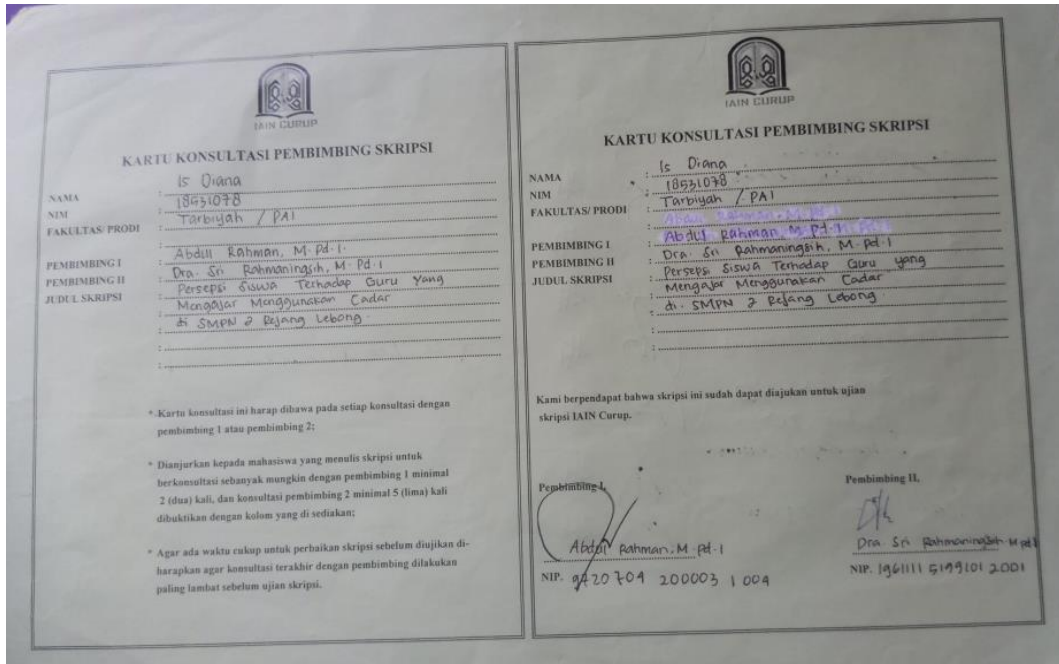 IAIN CURUP
KARTU KONSULTASI PEMBIMBING SKRIPSI
NAMA : Is Diana
NIM : 18531078
FAKULTAS/ PRODI : Tarbiyah / PAI
:
PEMBIMBING I : Abdul Rahman, M.Pd.I.
PEMBIMBING II : Dra. Sri Rahmaningsih, M.Pd.I
JUDUL SKRIPSI : Persepsi Siswa Terhadap Guru Yang
: Mengajar Menggunakan Cadar
: di SMPN 2 Rejang Lebong.
:
:
* Kartu konsultasi ini harap dibawa pada setiap konsultasi dengan
pembimbing 1 atau pembimbing 2;
* Dianjurkan kepada mahasiswa yang menulis skripsi untuk
berkonsultasi sebanyak mungkin dengan pembimbing 1 minimal
2 (dua) kali, dan konsultasi pembimbing 2 minimal 5 (lima) kali
dibuktikan dengan kolom yang di sediakan;
* Agar ada waktu cukup untuk perbaikan skripsi sebelum diujikan di-
harapkan agar konsultasi terakhir dengan pembimbing dilakukan
paling lambat sebelum ujian skripsi.
IAIN CURUP
KARTU KONSULTASI PEMBIMBING SKRIPSI
NAMA : Is Diana
NIM : 18531078
FAKULTAS/ PRODI : Tarbiyah / PAI
Abdul Rahman, M.Pd.I
PEMBIMBING I : Abdul Rahman, M.Pd.I
PEMBIMBING II : Dra. Sri Rahmaningsih, M.Pd.I
JUDUL SKRIPSI : Persepsi Siswa Terhadap Guru yang
: Mengajar Menggunakan Cadar
: di. SMPN 2 Rejang Lebong.
:
:
Kami berpendapat bahwa skripsi ini sudah dapat diajukan untuk ujian
skripsi IAIN Curup.
Pembimbing I,
Abdul Rahman, M.Pd.I
NIP. 9420704 200003 1 004
Pembimbing II,
Dra. Sri Rahmaningsih M.Pd.I
NIP. 1961111 5199101 2001